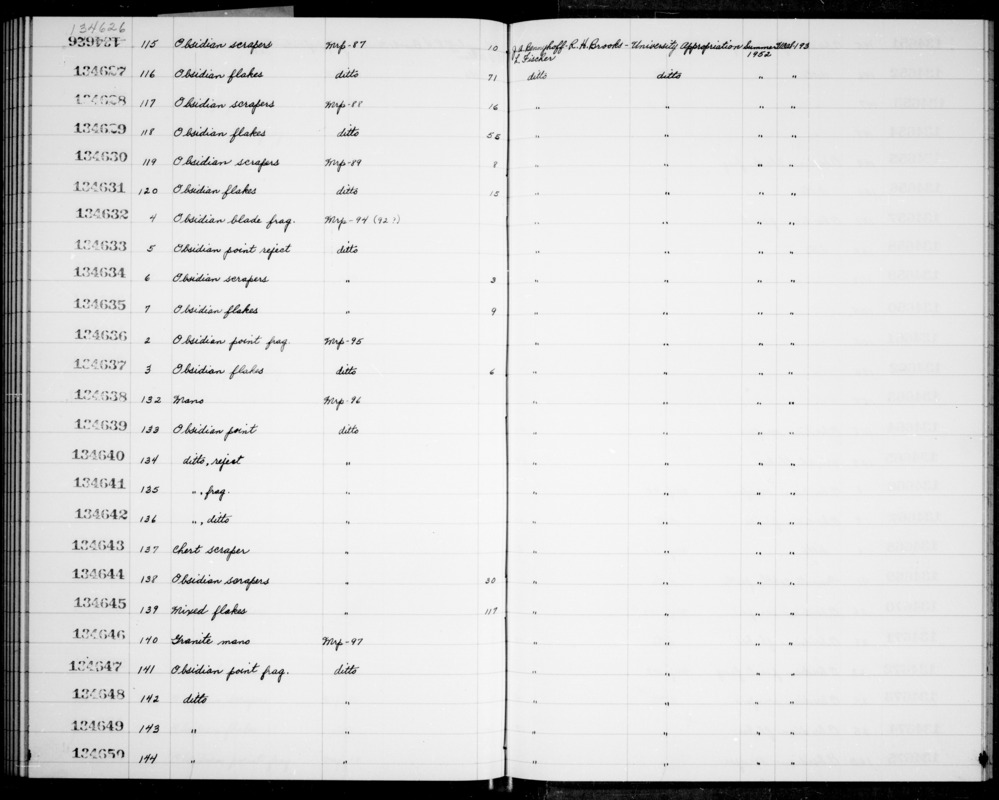 134626
134626 115 Obsidian scrapers Mrp-87 10 J.A. Bennyhoff-R.H. Brooks - University Appropriation Summer 193
L. Fischer 1952
134627 116 Obsidian flakes ditto 71 ditto ditto " "
134628 117 Obsidian scrapers Mrp-88 16 " " " "
134629 118 Obsidian flakes ditto 55 " " " "
134630 119 Obsidian scrapers Mrp-89 8 " " " "
134631 120 Obsidian flakes ditto 15 " " " "
134632 4 Obsidian blade frag. Mrp-94 (92?) " " " "
134633 5 Obsidian point reject ditto " " " "
134634 6 Obsidian scrapers " 3 " " " "
134635 7 Obsidian flakes " 9 " " " "
134636 2 Obsidian point frag. Mrp-95 " " " "
134637 3 Obsidian flakes ditto 6 " " " "
134638 132 Mano Mrp-96 " " " "
134639 133 Obsidian point ditto " " " "
134640 134 ditto, reject " " " " "
134641 135 ", frag. " " " " "
134642 136 ", ditto " " " " "
134643 137 Chert scraper " " " " "
134644 138 Obsidian scrapers " 30 " " " "
134645 139 Mixed flakes " 117 " " " "
134646 140 Granite mano Mrp-97 " " " "
134647 141 Obsidian point frag. ditto " " " "
134648 142 ditto " " " " "
134649 143 " " " " " "
134650 144 " " " " " "